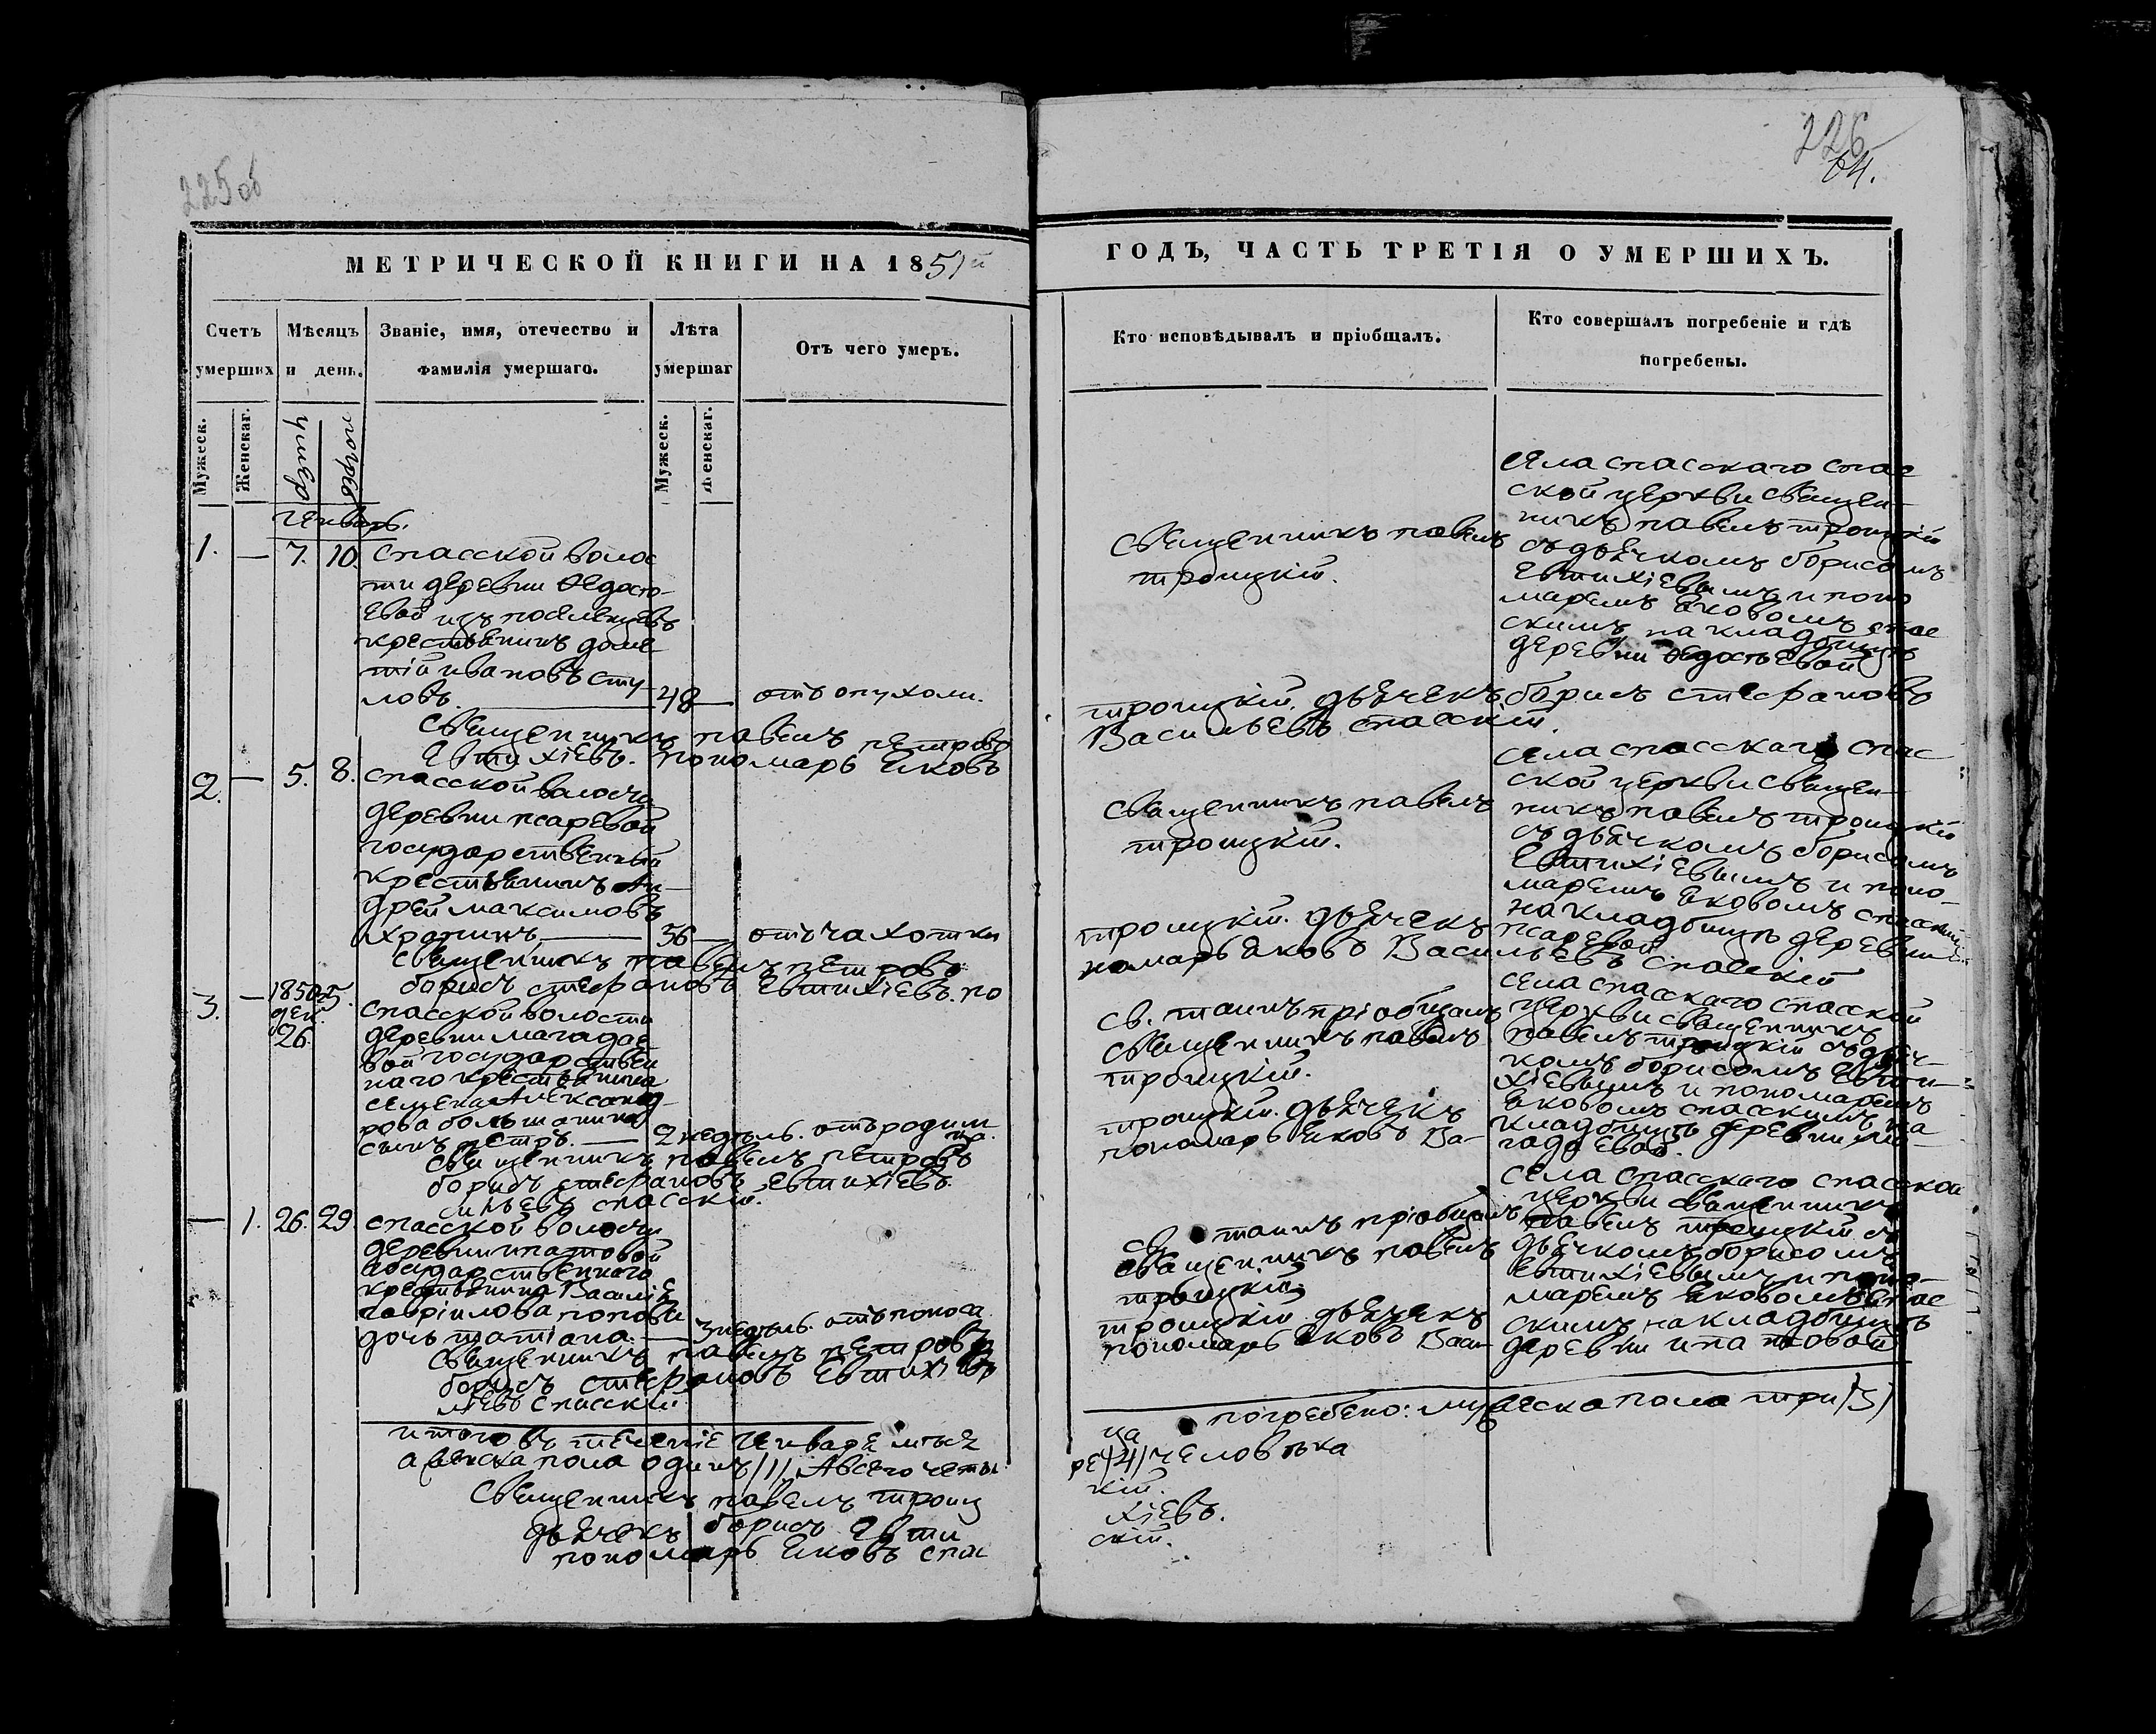 225 об
226
64.
МЕТРИЧЕСКОЙ КНИГИ НА 1851й
ГОДЪ, ЧАСТЬ ТРЕТІЯ О УМЕРШИХЪ.
Счетъ умерших
Мѣсяцъ и день.
Званіе, имя, отечество и фамилія умершаго.
Лѣта умершаг
Отъ чего умеръ.
Кто исповѣдывалъ и пріобщалъ.
Кто совершалъ погребеніе и гдѣ погребены.
Мужеск.
Женскаг.
умер
погреб
Мужеск.
Женскаг.
Генварь.
1. — 7. 10. спасской волос
ти деревни Федото
евой изъ поселенцовъ
крестьянинъ доме
тій ивановъ сту
ловъ. 48 — отъ опухоли.
священникъ павелъ
троицкій.
села спасскаго спас
ской церкви священ
никъ павелъ троицкій
съ дьячкомъ борисомъ
Евтихіевымъ и поно
маремъ яковомъ спас
скимъ на кладбищѣ
деревни
священникъ павелъ петровъ троицкій. дьячекъ борисъ стефановъ
Евтихіевъ. пономарь яковъ Васильевъ спасскій.
2. — 5. 8. спасской волости
деревни псаревой
государственный
крестьянинъ Ан
дрей максимовъ
храпинъ — 36 — отъ чахотки
священникъ павелъ
троицкій.
села спасскаго спас
ской церкви священ
никъ павелъ троицкій
съ дьячкомъ борисомъ
Евтихіевымъ и поно
маремъ яковомъ спасскимъ
на кладбищѣ деревни
псаревой
священникъ павелъ петровъ троицкій. дьячекъ
борисъ стефановъ Евтихіевъ. по номарь яковъ Васильевъ спасскій
3. — 1850 5. спасской волости
дек. деревни магадае
26. вой государствен
наго крестьянина
семена Александ
рова большанина
сынъ петръ. — 2 недѣль. отъ родим
ца.
св. таинъ пріобщалъ
священникъ павелъ
троицкій.
села спасскаго спасской
церкви священникъ
павелъ троицкій съ дьяч
комъ борисомъ Евти
хіевымъ и пономаремъ
яковомъ спасскимъ на
кладбищѣ деревни ма
гадаевой.
священникъ павелъ петровъ троицкій. дьячекъ
борисъ стефановъ Евтихіевъ. пономарь яковъ Ва
сильевъ спасскій.
— 1. 26. 29. спасской волости
деревни ипатовой
государственнаго
крестьянина Василія
гаврилова попова
дочь татіана. — 3 недѣль. отъ поноса
св. таинъ пріобщалъ
священникъ павелъ
троицкій.
села спасскаго спасской
церкви священникъ
павелъ троицкій съ
дьячкомъ борисомъ
Евтихіевымъ и поно
маремъ яковомъ спас
скимъ на кладбищѣ
деревни ипатовой
священникъ павелъ петровъ троицкій дьячекъ
борисъ стефановъ Евтихіевъ пономарь яковъ Васи
льевъ спасскій
итого въ теченіе генваря мѣсяца погребено: мужеска пола три/3/
а женска пола одинъ/1/, А всего четыре/4/ человѣка
священникъ павелъ троицкій.
дьячекъ борисъ Евтихіевъ.
пономарь яковъ спасскій.